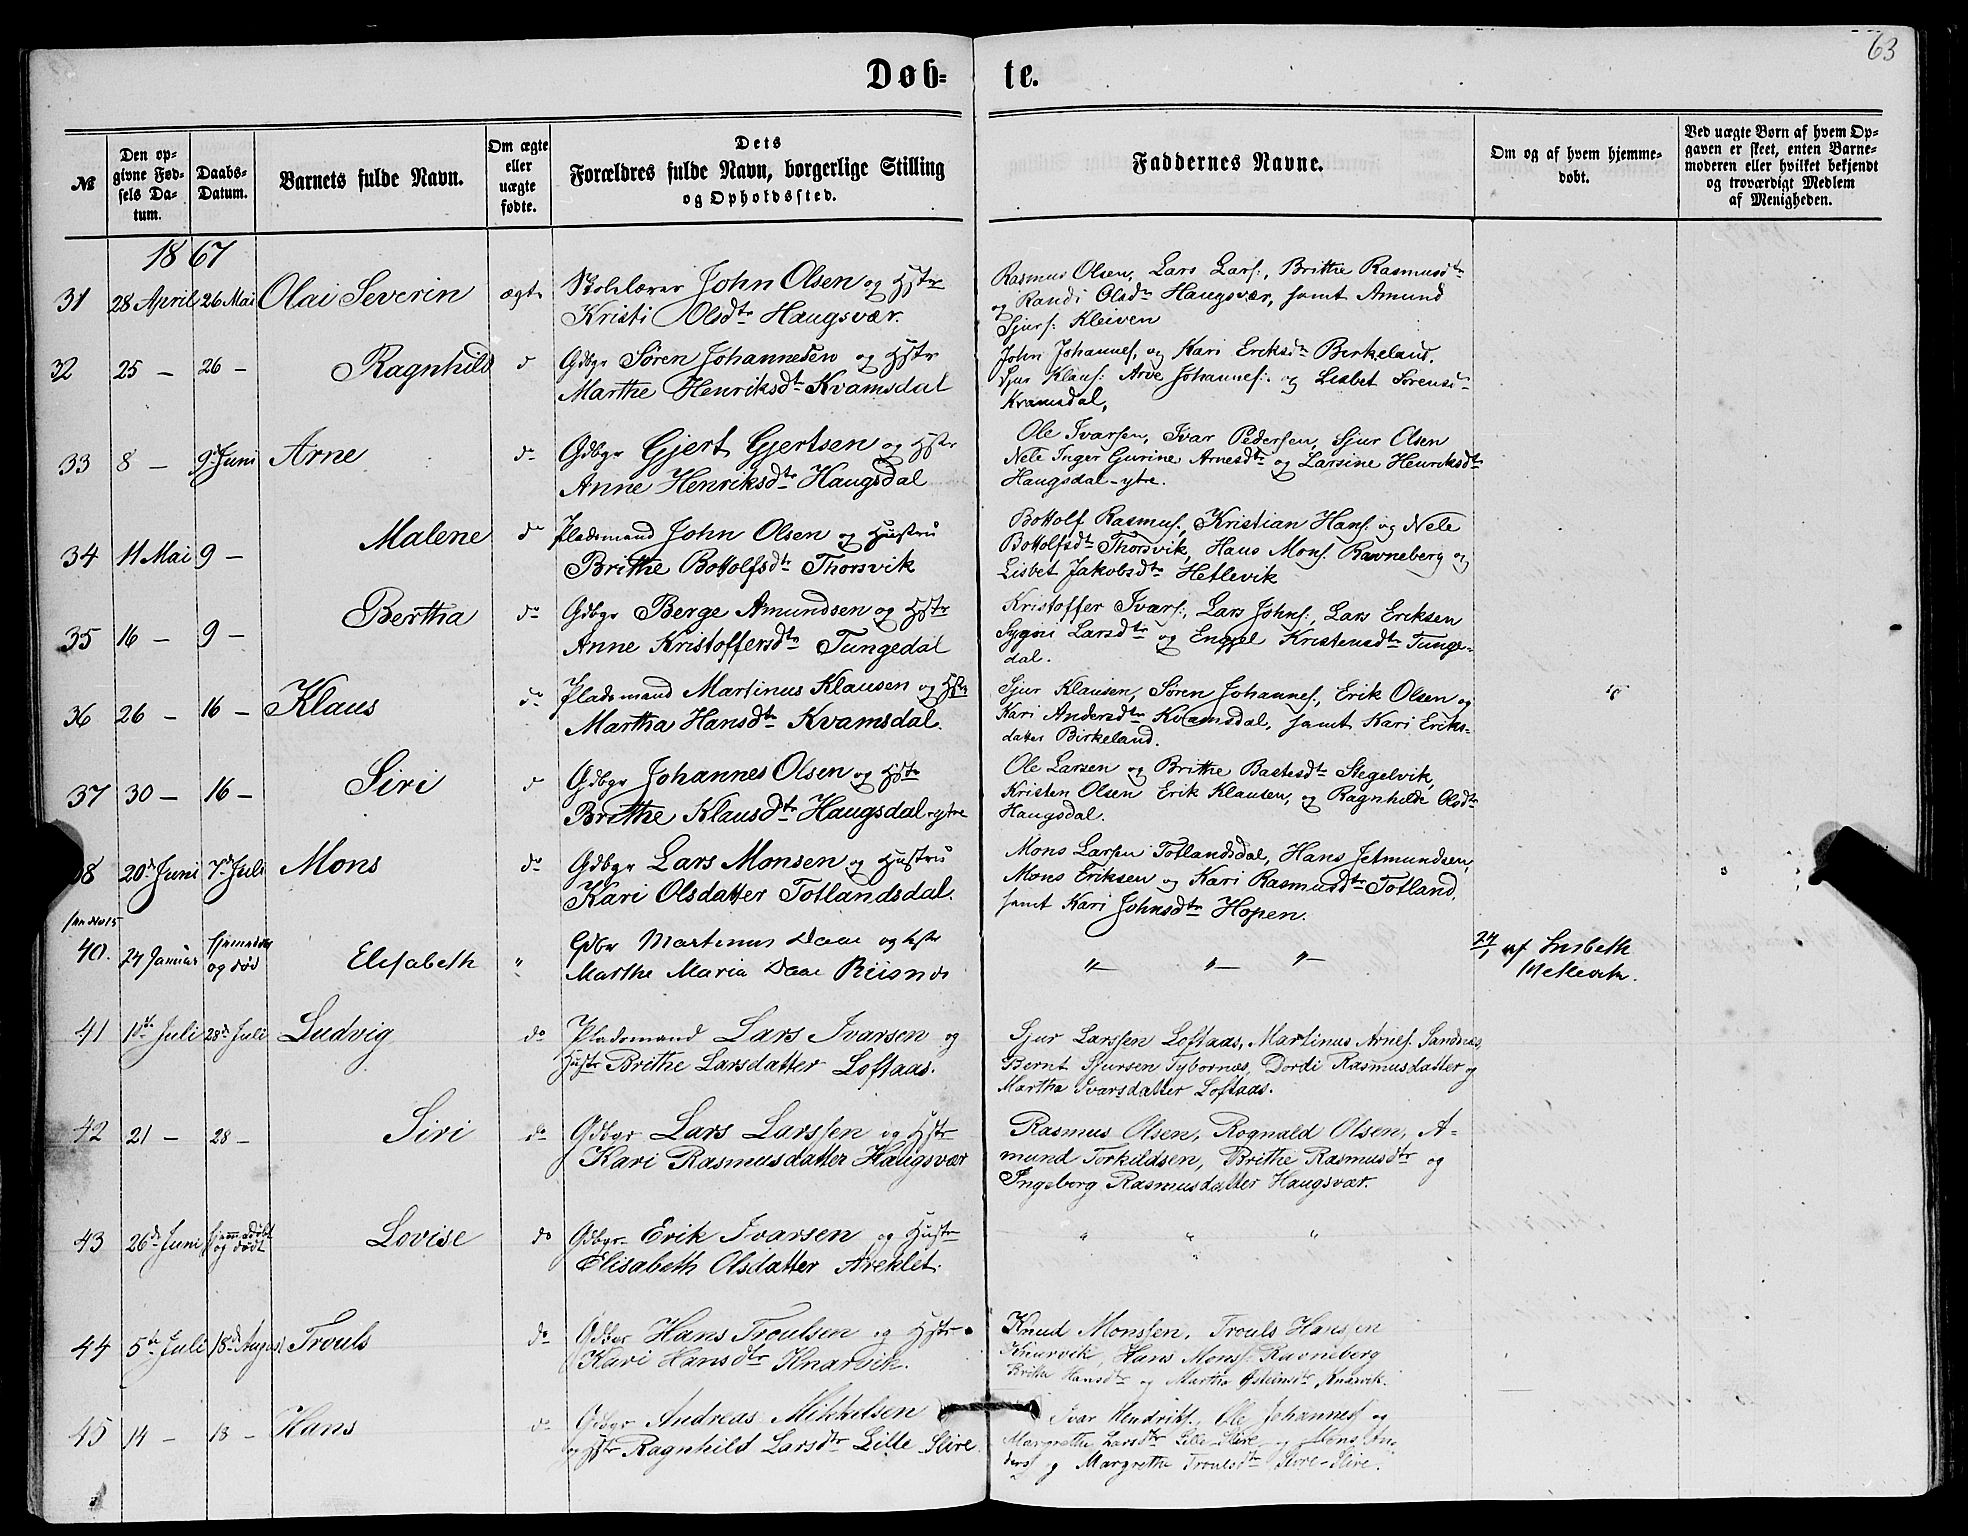 63
Døb-te.
№
Den op-
givne Fød-
sels Da-
tum.
Daabs-
Datum.
Barnets fulde Navn.
Om ægte
eller
uægte
fødte.
Dets
Forældres fulde Navn, borgerlige Stilling
og Opholdssted.
Faddernes Navne.
Om og af hvem hjemme-
døbt.
Ved uægte Børn af hvem Op-
gaven er skeet, enten Barne-
moderen eller hvilket bekjendt
og troværdigt Medlem
af Menigheden.
1867
31 28 April 26 Mai Olai Severin ægte Skolelærer John Olsen og Hstr
Kristi Olsdtr Haugsvær.
Rasmus Olsen, Lars Lars:, Brithe Rasmusdtr
og Randi Olsdtr Haugsvær, samt Amund
Sjurs: Kleiven
32 25 — 26 — Ragnhild do Gdbgr Søren Johannesen og Hstr
Marthe Henriksdtr Kvamsdal
John Johannes, og Kari Eriksdtr Birkeland,
Sjur Klaus: Arve Johannes: og Lisbet Sørensd
Kvamsdal,
33 8 — 9d Juni Arne do Gdbgr Gjert Gjertsen og Hstr
Anne Henriksdtr Haugsdal
Ole Ivarsen, Ivar Pedersen, Sjur Olsen
Nele Inger Gurine Arnesdtr og Larsine Henriksdtr
Haugsdal-ytre.
34 11 Mai 9 — Malene do Pladsmand John Olsen og Hustru
Brithe Bottolfsdtr Thorsvik
Bottolf Rasmus:, Kristian Hans: og Nele
Bottolfsdtr Thorsvik, Hans Mons: Ravneberg og
Lisbet Jakobsdtr Hetlevik
35 16 — 9 — Bertha do Gdbgr Berge Amundsen og Hstr
Anne Kristoffersdtr Tungedal
Kristoffer Ivars:, Lars Johns:, Lars Eriksen
Sygni Larsdtr og Engel Kristensdtr Tunge-
dal.
36 26 — 16 — Klaus do Pladsmand Martinus Klausen og Hstr
Martha Hansdtr Kvamsdal.
Sjur Klausen, Søren Johannes:, Erik Olsen og
Kari Andersdtr Kvamsdal, samt Kari Eriks-
datter Birkeland.
37 30 — 16 — Siri do Gdbgr Johannes Olsen og Hstr
Brithe Klausdtr Haugsdal-ytre
Ole Larsen og Brithe Bastesdtr Stegelvik,
Kristen Olsen Erik Klausen, og Ragnhilde Olsdtr
Haugsdal.
38 20d Juni 7d Juli Mons do Gdbgr Lars Monsen og Hustru
Kari Olsdatter Totlandsdal.
Mons Larsen Totlandsdal, Hans Jetmundsen,
Mons Eriksen og Kari Rasmusdtr Totland,
samt Kari Johnsdtr Hopen.
40. 24 Januar hjemmedøbt
og død Elisabeth " Gdbr Martinus Daae og Hstr
Marthe Maria Daae Riisnes
" " "
24/1 af Lisbeth
Hetlevik.
41 1ste Juli 28d Juli Ludvig do Pladsmand Lars Ivarsen og
Hustr Brithe Larsdatter Loftaas.
Sjur Larssen Loftaas, Martinus Arnes: Sandnes,
Bernt Sjursen Tybornæs, Dordi Rasmusdatter og
Martha Ivarsdatter Loftaas.
42 21 — 28 — Siri do Gdbgr Lars Larssen og Hstr
Kari Rasmusdatter Haugsvær
Rasmus Olsen, Rognald Olsen, A-
mund Torkildsen, Brithe Rasmusdtr og
Ingeborg Rasmusdatter Haugsvær.
43 26d Juni hjemmedøbt
og dødt Lovise do Gdbgr Erik Ivarsen og Hustr
Elisabeth Olsdatter Areklet.
" " "
44 5te Juli 18d August Trouls do Gdbgr Hans Troulsen og Hstr
Kari Hansdtr Knarvik.
Knud Monssen, Trouls Hanssen
Knarvik, Hans Mons: Ravneberg
Brithe Hansdtr og Martha Østeinsdtr Knarvik.
45 14 — 18 — Hans do Gdbgr Andreas Mikkelsen
og Hstr Ragnhild Larsdtr Lille Slire
Ivar Hendriks:, Ole Johannes: og
Margrethe Larsdtr Lille-Slire og Mons An-
ders: og Margrethe Troulsdtr Slire-Slire.